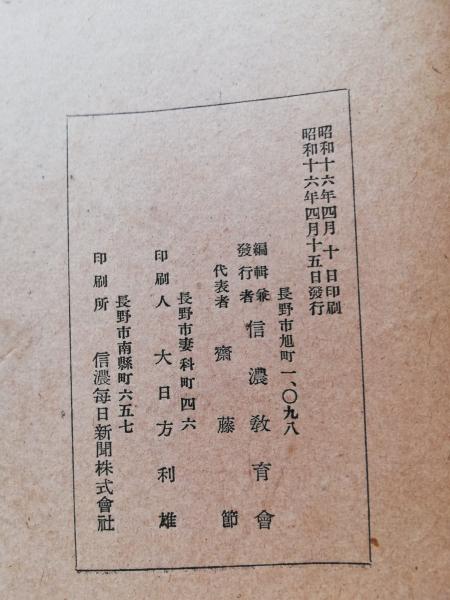 昭和十六年四月十日印刷
昭和十六年四月十五日發行
長野市旭町一、〇九八
編輯兼發行者 信濃敎育會
代表者 齋藤節
長野市妻科町四六
印刷人 大日方利雄
長野市南縣町六五七
印刷所 信濃每日新聞株式會社